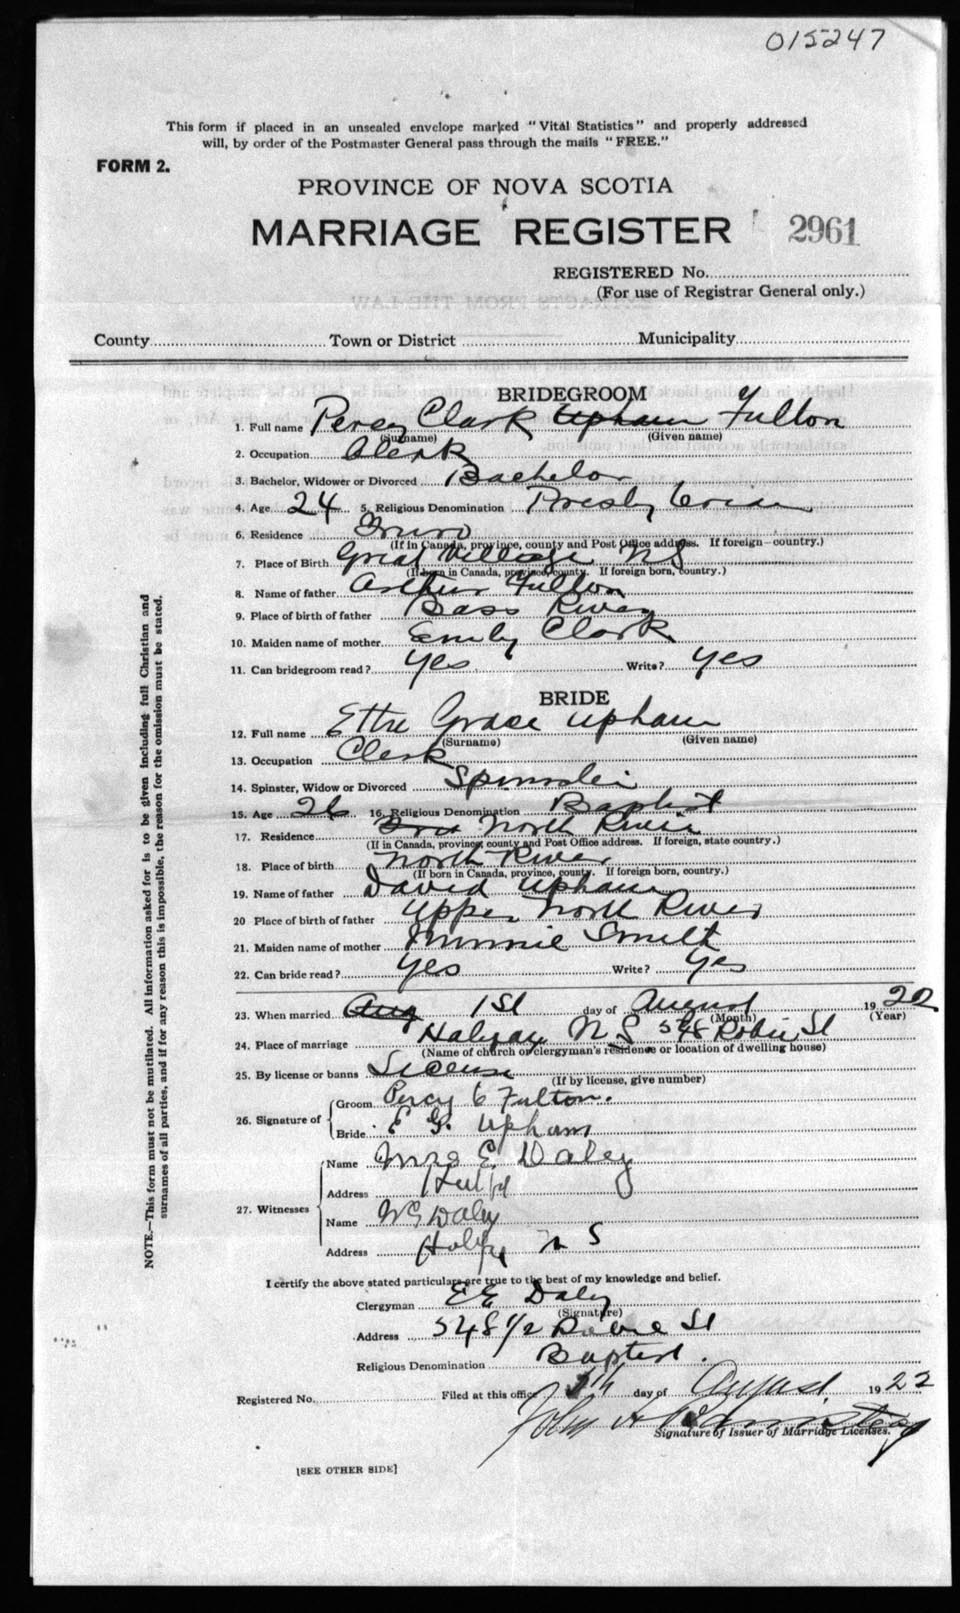 015247
This form if placed in an unsealed envelope marked "Vital Statistics" and properly addressed
will, by order of the Postmaster General pass through the mails "FREE."
FORM 2.
PROVINCE OF NOVA SCOTIA
MARRIAGE REGISTER 2961
REGISTERED No.
(For use of Registrar General only.)
County Town or District Municipality
BRIDEGROOM
1. Full name Percy Clark Upham Fulton
(Surname) (Given name)
2. Occupation Clerk
3. Bachelor, Widower or Divorced Bachelor
4. Age 24 5. Religious Denomination Presbyterian
6. Residence Truro
(If in Canada, province, county and Post Office address. If foreign—country.)
7. Place of Birth Great Village NS
(If born in Canada, province, county. If foreign born, country.)
8. Name of father Arthur Fulton
9. Place of birth of father Bass River
10. Maiden name of mother Emily Clark
11. Can bridegroom read? Yes Write? Yes
BRIDE
12. Full name Grace Upham
(Surname) (Given name)
13. Occupation Clerk
14. Spinster, Widow or Divorced Spinster
15. Age 26 16. Religious Denomination Baptist
17. Residence North River
(If in Canada, province, county and Post Office address. If foreign, state country.)
18. Place of birth North River
(If born in Canada, province, county. If foreign born, country.)
19. Name of father David Upham
20 Place of birth of father Upper North River
21. Maiden name of mother Minnie Smith
22. Can bride read? Yes Write? Yes
23. When married Aug 1st day of August 1922
(Month) (Year)
24. Place of marriage Halifax N S 548 St
(Name of church or clergyman's residence or location of dwelling house)
25. By license or banns License
(If by license, give number)
26. Signature of Groom Percy C Fulton.
Bride E G. Upham
27. Witnesses Name Mrs E Daley
Address
Name Daley
Address Halifax N S
I certify the above stated particulars are true to the best of my knowledge and belief.
Clergyman E E Daley
(Signature)
Address 548 1/2 St
Religious Denomination Baptist.
Registered No. Filed at this office day of August 1922
John A
Signature of Issuer of Marriage Licenses.
[SEE OTHER SIDE]
NOTE.—This form must not be mutilated. All information asked for is to be given including full Christian and
surnames of all parties, and if for any reason this is impossible, the reason for the omission must be stated.